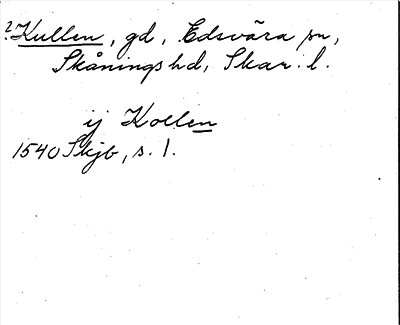 ?Kullen, gd, Edsvära sn,
Skånings hd, Skar. l.
ij Kollen
1540 Skjb, s. 1.